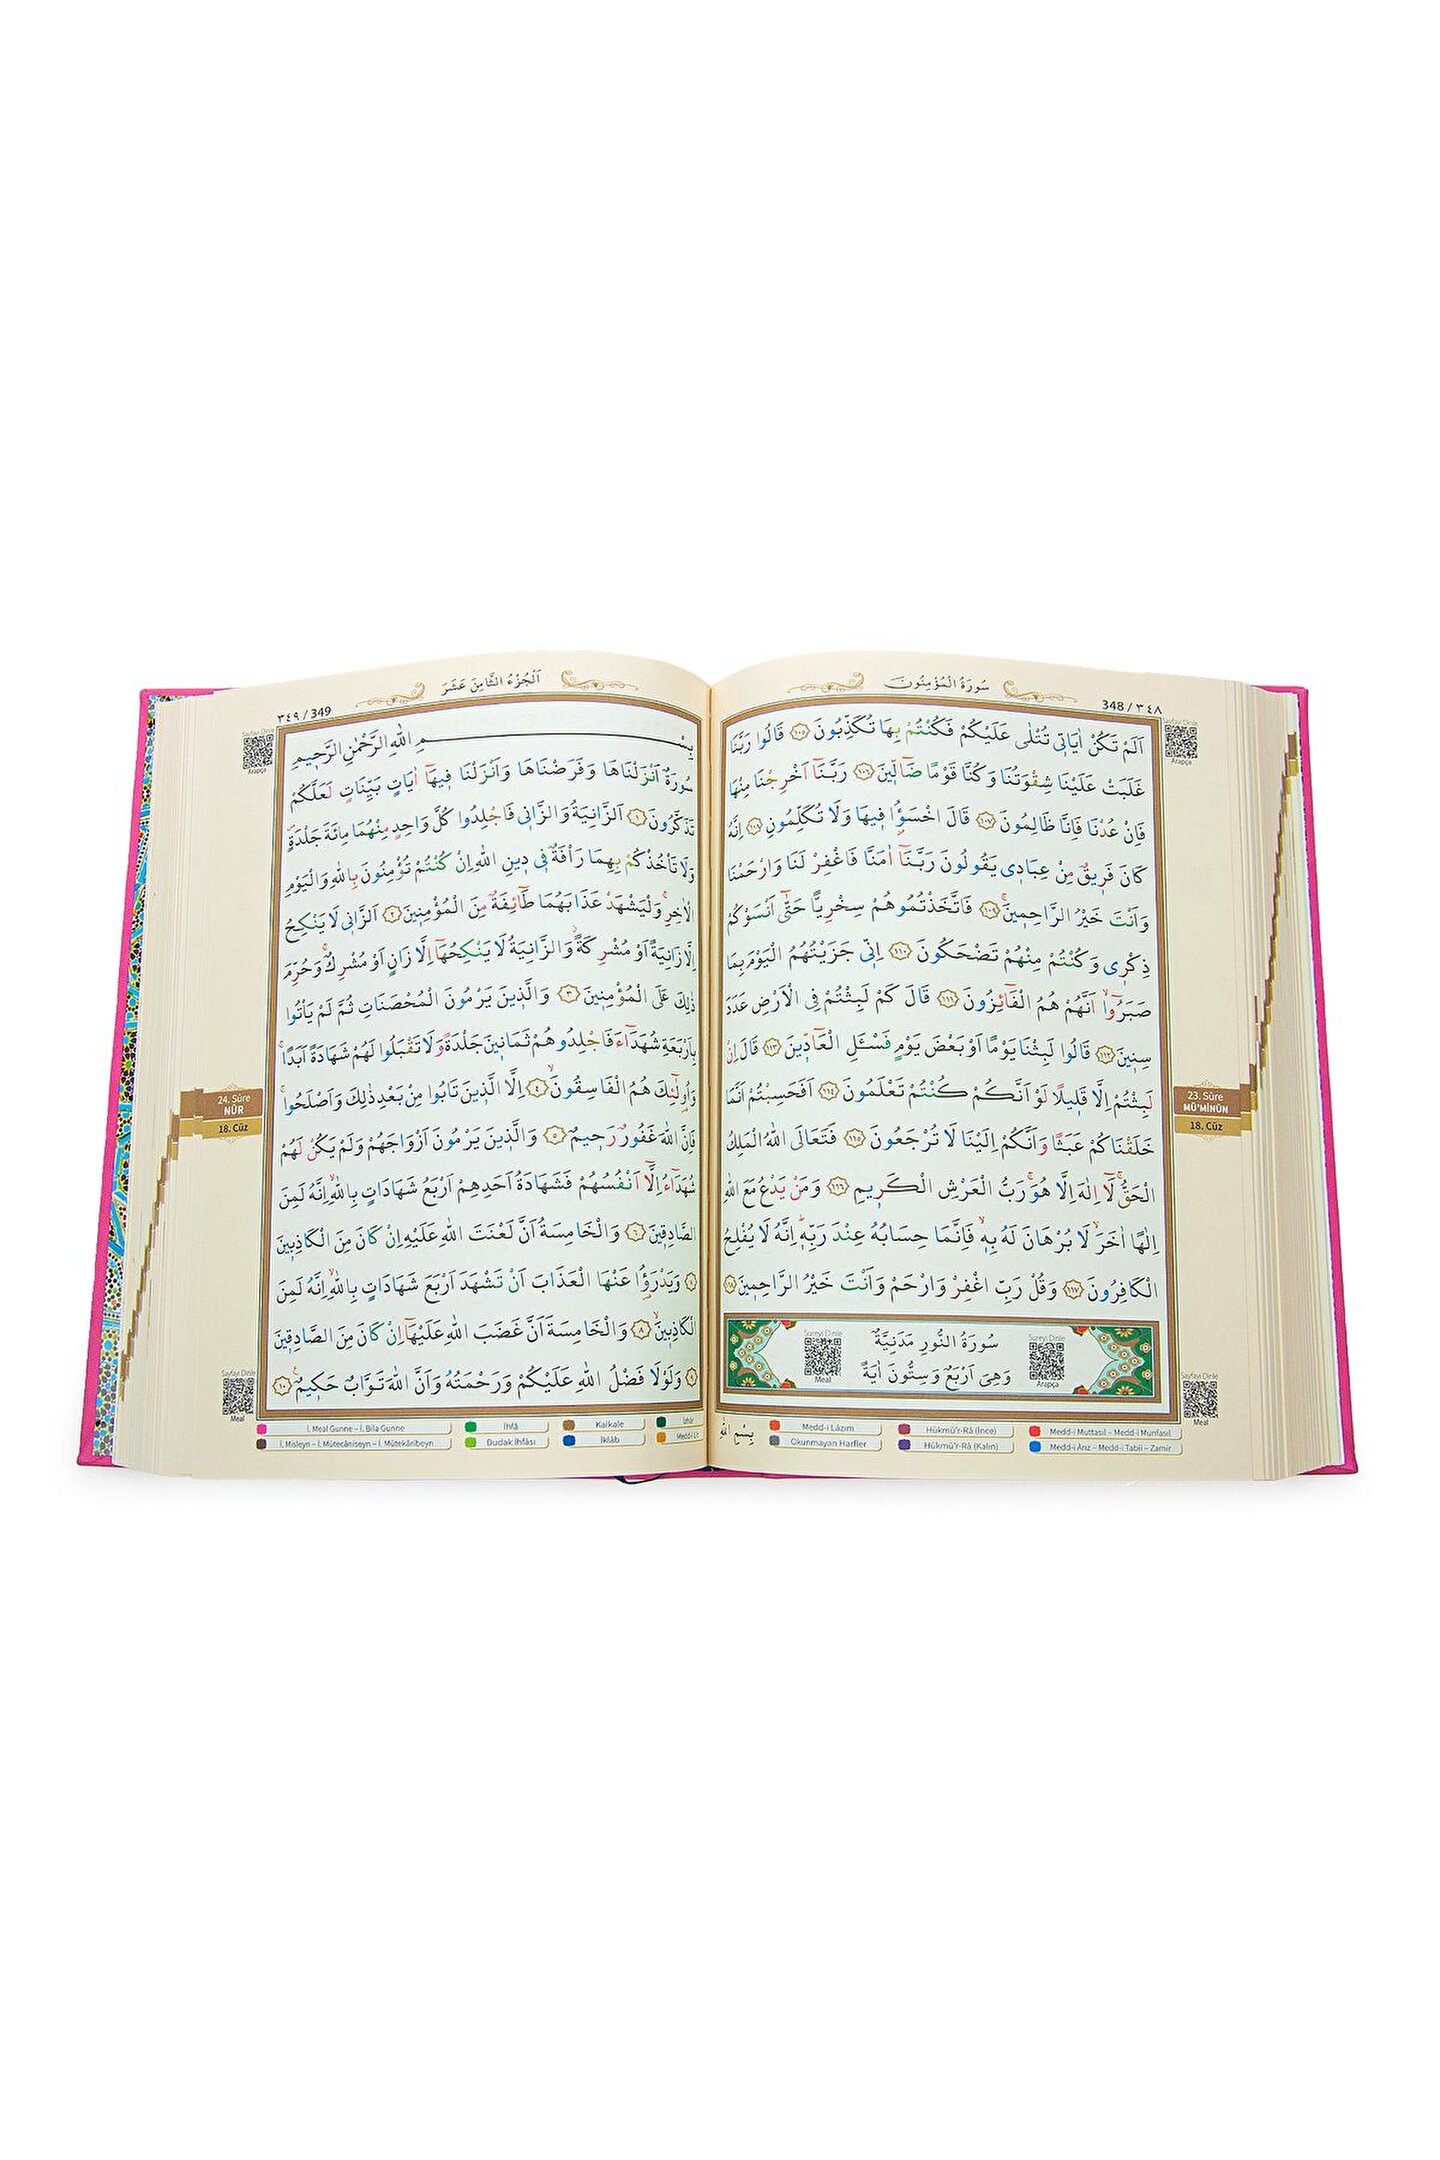 348 / ٣٤٨
سُورَةُ الْمُؤْمِنُونَ
Sayfayı Dinle
Arapça
اَلَمْ تَكُنْ اٰيَاتٖي تُتْلٰى عَلَيْكُمْ فَكُنْتُمْ بِهَا تُكَذِّبُونَ ﴿١٠٥﴾ قَالُوا رَبَّنَا
غَلَبَتْ عَلَيْنَا شِقْوَتُنَا وَكُنَّا قَوْمًا ضَٓالّٖينَ ﴿١٠٦﴾ رَبَّنَٓا اَخْرِجْنَا مِنْهَا
فَاِنْ عُدْنَا فَاِنَّا ظَالِمُونَ ﴿١٠٧﴾ قَالَ اخْسَؤُ۫ا فٖيهَا وَلَا تُكَلِّمُونِ ﴿١٠٨﴾ اِنَّهُ
كَانَ فَرٖيقٌ مِنْ عِبَادٖي يَقُولُونَ رَبَّنَٓا اٰمَنَّا فَاغْفِرْ لَنَا وَارْحَمْنَا
وَاَنْتَ خَيْرُ الرَّاحِمٖينَۚ ﴿١٠٩﴾ فَاتَّخَذْتُمُوهُمْ سِخْرِيًّا حَتّٰٓى اَنْسَوْكُمْ
ذِكْرٖي وَكُنْتُمْ مِنْهُمْ تَضْحَكُونَ ﴿١١٠﴾ اِنّٖي جَزَيْتُهُمُ الْيَوْمَ بِمَا
صَبَرُٓواۙ اَنَّهُمْ هُمُ الْفَٓائِزُونَ ﴿١١١﴾ قَالَ كَمْ لَبِثْتُمْ فِي الْاَرْضِ عَدَدَ
سِنٖينَ ﴿١١٢﴾ قَالُوا لَبِثْنَا يَوْمًا اَوْ بَعْضَ يَوْمٍ فَسْـَٔلِ الْعَٓادّٖينَ ﴿١١٣﴾ قَالَ اِنْ
لَبِثْتُمْ اِلَّا قَلٖيلًا لَوْ اَنَّكُمْ كُنْتُمْ تَعْلَمُونَ ﴿١١٤﴾ اَفَحَسِبْتُمْ اَنَّمَا
خَلَقْنَاكُمْ عَبَثًا وَاَنَّكُمْ اِلَيْنَا لَا تُرْجَعُونَ ﴿١١٥﴾ فَتَعَالَى اللّٰهُ الْمَلِكُ
الْحَقُّۚ لَٓا اِلٰهَ اِلَّا هُوَۚ رَبُّ الْعَرْشِ الْكَرٖيمِ ﴿١١٦﴾ وَمَنْ يَدْعُ مَعَ اللّٰهِ
اِلٰهًا اٰخَرَۙ لَا بُرْهَانَ لَهُ بِهٖۙ فَاِنَّمَا حِسَابُهُ عِنْدَ رَبِّهٖؕ اِنَّهُ لَا يُفْلِحُ
الْكَافِرُونَ ﴿١١٧﴾ وَقُلْ رَبِّ اغْفِرْ وَارْحَمْ وَاَنْتَ خَيْرُ الرَّاحِمٖينَ ﴿١١٨﴾
سُورَةُ النُّورِ مَدَنِيَّةٌ
وَهِيَ اَرْبَعٌ وَسِتُّونَ اٰيَةً
Sureyi Dinle
Arapça
Sureyi Dinle
Meal
23. Sûre
MÜ'MİNÛN
18. Cüz
Sayfayı Dinle
Meal
بِسْمِ اللّٰهِ
Medd-i Lâzım
Hükmü'r-Râ (İnce)
Medd-i Muttasıl – Medd-i Munfasıl
Okunmayan Harfler
Hükmü'r-Râ (Kalın)
Medd-i Ârız – Medd-i Tabiî – Zamir
اَلْجُزْءُ الثَّامِنَ عَشَرَ
٣٤٩ / 349
Sayfayı Dinle
Arapça
بِسْمِ اللّٰهِ الرَّحْمٰنِ الرَّحٖيمِ
سُورَةٌ اَنْزَلْنَاهَا وَفَرَضْنَاهَا وَاَنْزَلْنَا فٖيهَٓا اٰيَاتٍ بَيِّنَاتٍ لَعَلَّكُمْ
تَذَكَّرُونَ ﴿١﴾ اَلزَّانِيَةُ وَالزَّانٖي فَاجْلِدُوا كُلَّ وَاحِدٍ مِنْهُمَا مِائَةَ جَلْدَةٍۖ
وَلَا تَأْخُذْكُمْ بِهِمَا رَأْفَةٌ فٖي دٖينِ اللّٰهِ اِنْ كُنْتُمْ تُؤْمِنُونَ بِاللّٰهِ وَالْيَوْمِ
الْاٰخِرِۚ وَلْيَشْهَدْ عَذَابَهُمَا طَٓائِفَةٌ مِنَ الْمُؤْمِنٖينَ ﴿٢﴾ اَلزَّانٖي لَا يَنْكِحُ
اِلَّا زَانِيَةً اَوْ مُشْرِكَةًۘ وَالزَّانِيَةُ لَا يَنْكِحُهَٓا اِلَّا زَانٍ اَوْ مُشْرِكٌۚ وَحُرِّمَ
ذٰلِكَ عَلَى الْمُؤْمِنٖينَ ﴿٣﴾ وَالَّذٖينَ يَرْمُونَ الْمُحْصَنَاتِ ثُمَّ لَمْ يَأْتُوا
بِاَرْبَعَةِ شُهَدَٓاءَ فَاجْلِدُوهُمْ ثَمَانٖينَ جَلْدَةً وَلَا تَقْبَلُوا لَهُمْ شَهَادَةً اَبَدًاۚ
وَاُو۬لٰٓئِكَ هُمُ الْفَاسِقُونَۙ ﴿٤﴾ اِلَّا الَّذٖينَ تَابُوا مِنْ بَعْدِ ذٰلِكَ وَاَصْلَحُواۚ
فَاِنَّ اللّٰهَ غَفُورٌ رَحٖيمٌ ﴿٥﴾ وَالَّذٖينَ يَرْمُونَ اَزْوَاجَهُمْ وَلَمْ يَكُنْ لَهُمْ
شُهَدَٓاءُ اِلَّٓا اَنْفُسُهُمْ فَشَهَادَةُ اَحَدِهِمْ اَرْبَعُ شَهَادَاتٍ بِاللّٰهِۙ اِنَّهُ لَمِنَ
الصَّادِقٖينَ ﴿٦﴾ وَالْخَامِسَةُ اَنَّ لَعْنَتَ اللّٰهِ عَلَيْهِ اِنْ كَانَ مِنَ الْكَاذِبٖينَ
﴿٧﴾ وَيَدْرَؤُ۬ا عَنْهَا الْعَذَابَ اَنْ تَشْهَدَ اَرْبَعَ شَهَادَاتٍ بِاللّٰهِۙ اِنَّهُ لَمِنَ
الْكَاذِبٖينَۙ ﴿٨﴾ وَالْخَامِسَةَ اَنَّ غَضَبَ اللّٰهِ عَلَيْهَٓا اِنْ كَانَ مِنَ الصَّادِقٖينَ
﴿٩﴾ وَلَوْلَا فَضْلُ اللّٰهِ عَلَيْكُمْ وَرَحْمَتُهُ وَاَنَّ اللّٰهَ تَوَّابٌ حَكٖيمٌ ﴿١٠﴾
24. Sûre
NÛR
18. Cüz
Sayfayı Dinle
Meal
İ. Meal Gunne – İ. Bila Gunne
İhfâ
Kalkale
İzhâr
İ. Misleyn – İ. Mütecâniseyn – İ. Mütekâribeyn
Dudak İhfâsı
İklâb
Medd-i Lîn